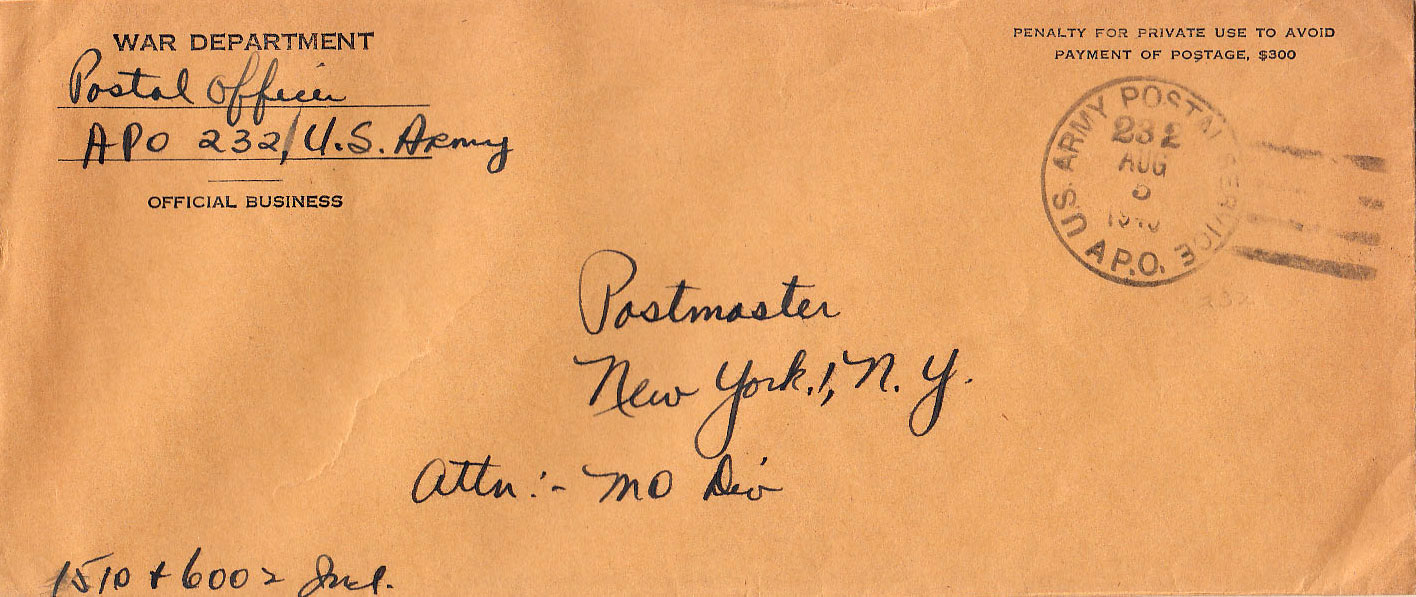 WAR DEPARTMENT
Postal Officer
APO 232, U.S. Army
OFFICIAL BUSINESS
PENALTY FOR PRIVATE USE TO AVOID
PAYMENT OF POSTAGE, $300
U.S. ARMY POSTAL SERVICE
232
AUG
5
A.P.O.
Postmaster
New York, 1, N. Y.
Attn:- MO Div
1510 + 6002 Incl.